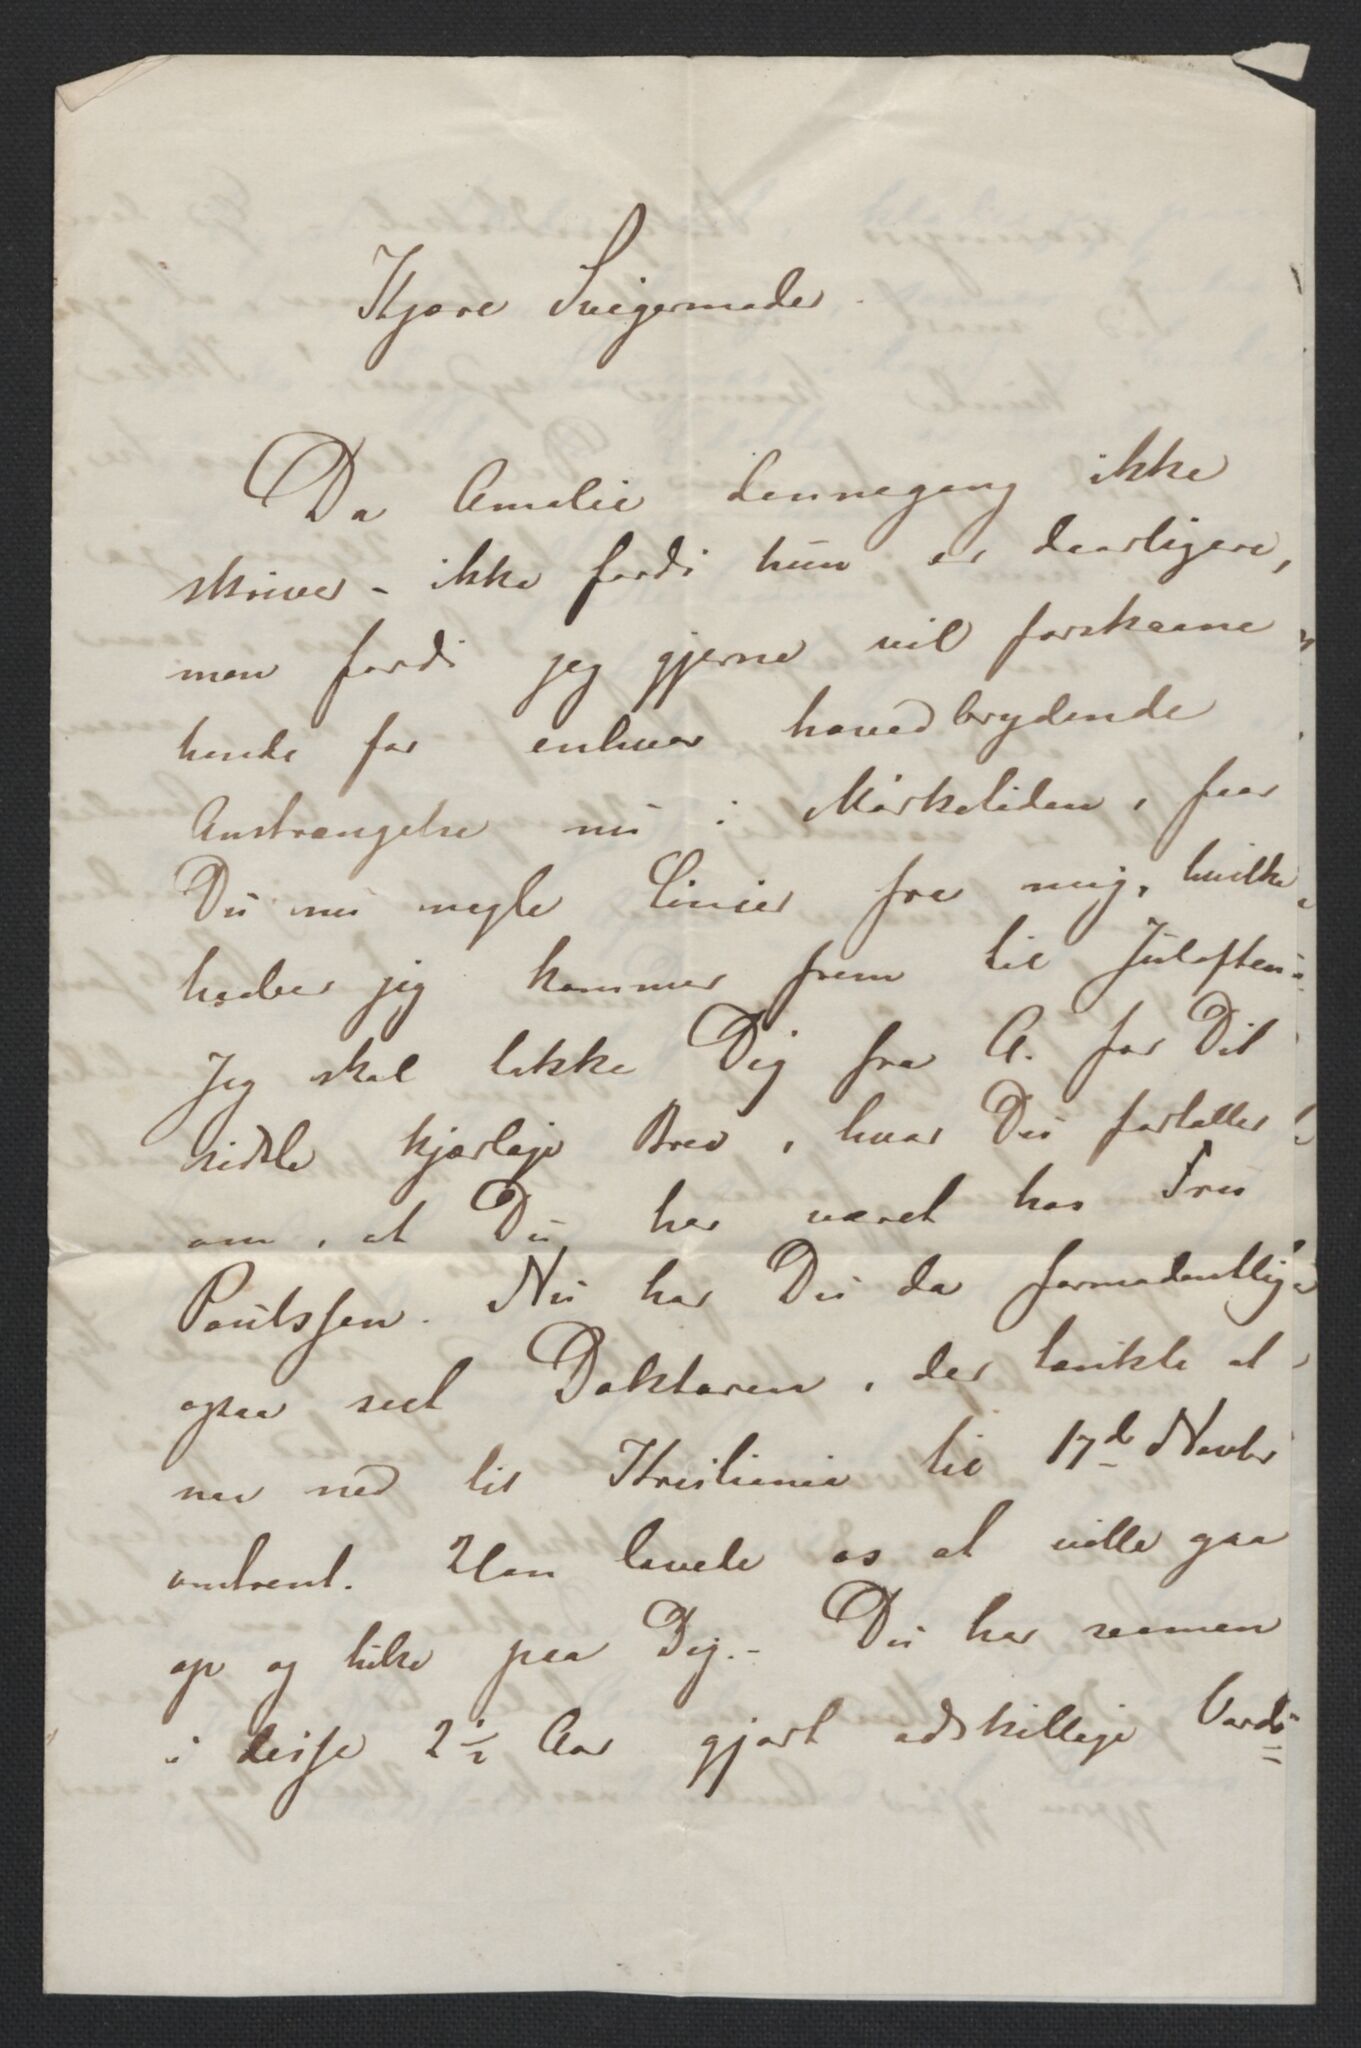 Kjære Svigermoder.
Da Amalie dennegang ikke
skriver – ikke fordi hun er daarligere,
men fordi jeg gjerne vil forskaane
hende for enhver hovedbrydende
Anstrængelse nu i Mørketiden, faar
Du nu nogle Linier fra mig, hvilke
haaber jeg kommer frem til Juleaften.
Jeg skal takke Dig fra A. for Dit
sidste kjærlige Brev, hvor Du fortæller
om, at Du har været hos Fru
Poulssen. Nu har Du da formodentlig
ogsaa seet Doktoren, der tænkte at
naa ned til Kristiania til 17de Novbr
omtrent. Han lovede os at ville gaa
op og hilse paa Dig. – Du har saamen
i disse 2½ Aar gjort adskillige Vardø=